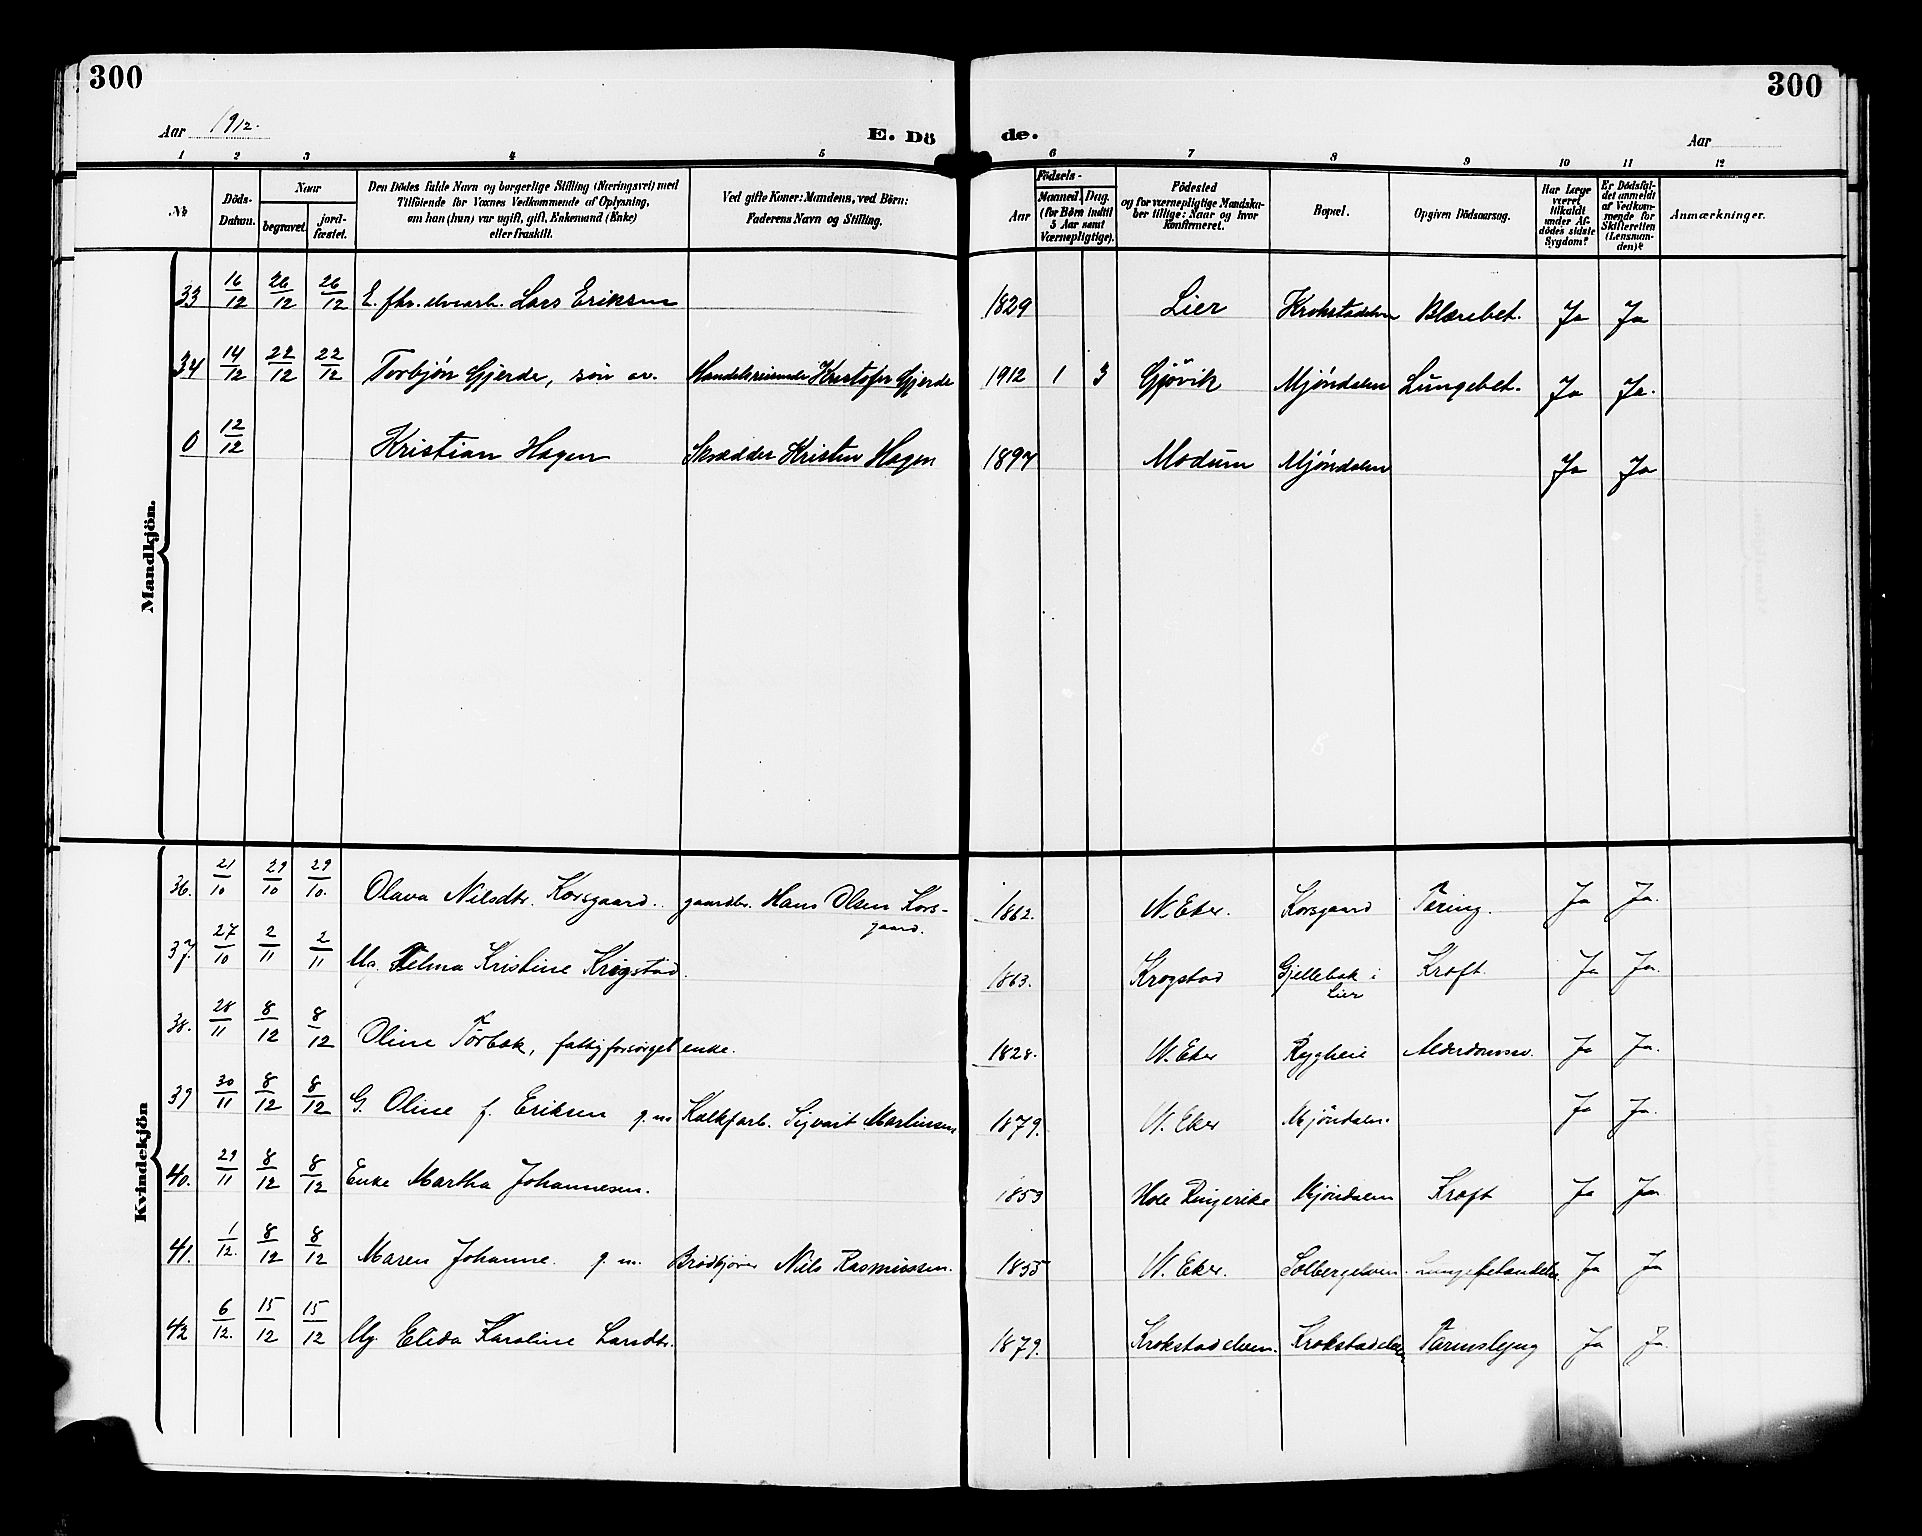 300
300
Aar 1912.
E. Dö de.
Aar
1 2 3 4 5 6 7 8 9 10 11 12
No
Döds-
Datum.
Naar
begravet.
jord-
fæstet.
Den Dödes fulde Navn og borgerlige Stilling (Næringsvei) med
Tilföiende for Voxnes Vedkommende af Oplysning,
om han (hun) var ugift, gift, Enkemand (Enke)
eller fraskilt.
Ved gifte Koner: Mandens, ved Börn:
Faderens Navn og Stilling.
Födsels-
Aar
Maaned. Dag.
(for Börn indtil
5 Aar samt
Værnepligtige).
Födested
og for værnepligtige Mandska-
ber tillige: Naar og hvor
konfirmeret.
Bopæl.
Opgiven Dödsaarsag.
Har Læge
været
tilkaldt
under Af-
dödes sidste
Sygdom?
Er Dödsfal-
det anmeldt
af Vedkom-
mende for
Skifteretten
(Lensman-
den)?
Anmærkninger.
Mandkjön.
33 16/12 26/12 26/12 E. fhv. elvearb. Lars Eriksen 1829 Lier Krokstadelven Blærebet. Ja Ja
34 14/12 22/12 22/12 Torbjön Gjerde, sön av. Handelsreisende Kristofer Gjerde 1912 1 3 Gjövik Mjöndalen Lungebet. Ja Ja.
0 12/12 Kristian Hagen Skrædder Kristen Hagen 1897 Modum Mjöndalen Ja Ja
Kvindekjön
36. 21/10 29/10 29/10. Olava Nilsdtr. Korsgaard. gaardbr. Hans Olsen Kors-
gaard. 1862. N. Eker. Korsgaard Tæring. Ja Ja.
37. 27/10 2/11 2/11 Ug. Telma Kristine Krogstad. 1863. Krogstad Gjellebæk i
Lier Kræft. Ja Ja.
38. 28/11 8/12 8/12 Oline Torbæk, fattigforsörget enke. 1828. N. Eker Rygheie Alderdomsv. Ja Ja.
39 30/11 8/12 8/12 G. Oline f. Eriksen g. m. Kalkfarb. Sigvart Martinsen 1879. N. Eker Mjöndalen. Ja Ja.
40. 29/11 8/12 8/12 Enke Martha Johannesen. 1853 Hole Ringerike Mjöndalen Kræft Ja Ja.
41. 1/12. 8/12 8/12 Maren Johanne. g. m. Brödkjörer Nils Rasmussen. 1855 N. Eker. Solbergelven. Ja Ja
42 6/12. 15/12 15/12 Ug. Elida Karoline Larsdtr. 1879. Krokstadelven. Krokstadelven Tarmslyng Ja Ja.